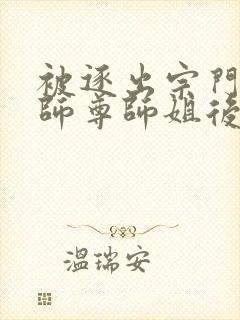 被逐出宗門
師尊師姐後
溫瑞安